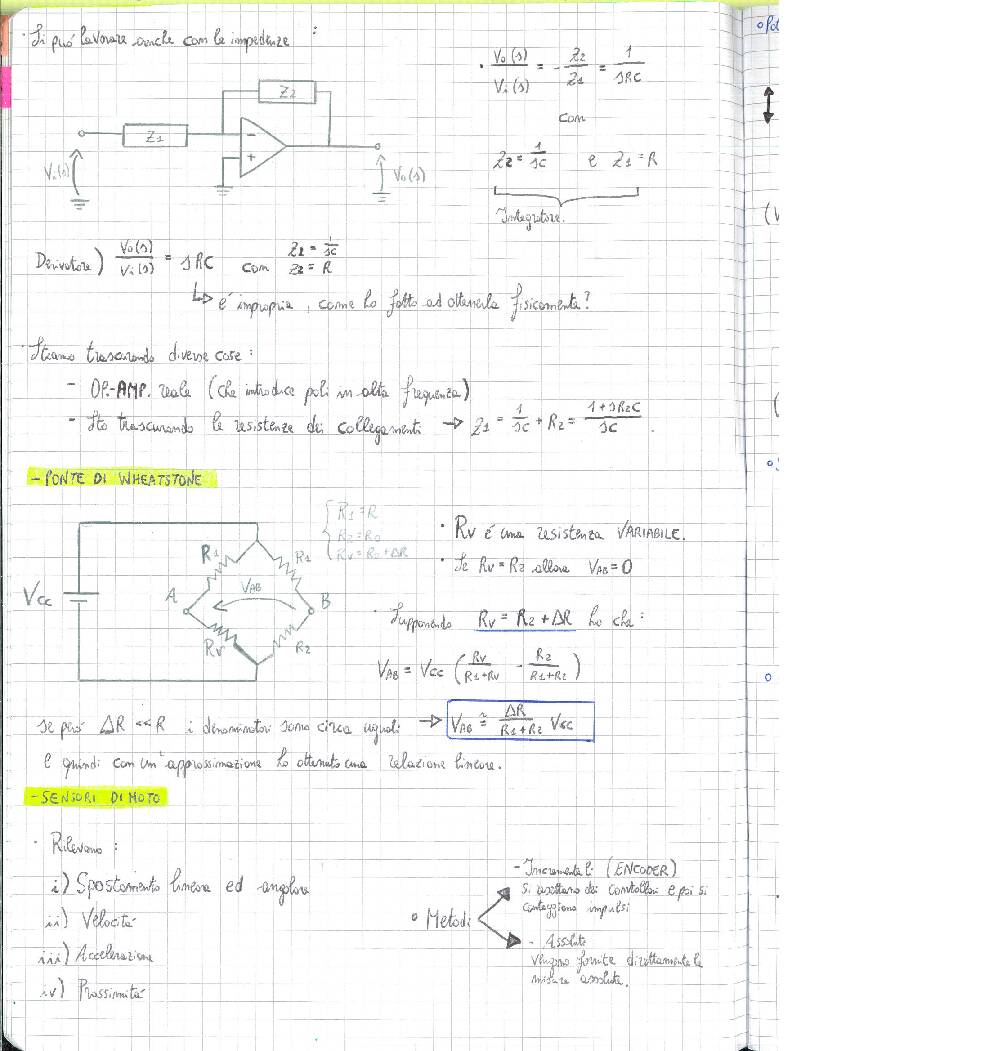 · Si può lavorare anche con le impedenze :
Z2
Z1
-
+
Vi(s)
Vo(s)
· Vo(s)/Vi(s) = - Z2/Z1 = 1/sRC
com
Z2 = 1/sC e Z1 = R
Integratore.
Derivatore) Vo(s)/Vi(s) = sRC com Z1 = 1/sC Z2 = R
↳ è impropria, come ho fatto ad ottenerla fisicamente?
· Stiamo trascurando diverse cose :
- OP.-AMP. reale (che introduce poli in alta frequenza)
- Sto trascurando le resistenze dei collegamenti → Z1 = 1/sC + R2 = (1+sR2C)/sC .
- PONTE DI WHEATSTONE
R1 = R
R2 = R0
RV = R0 + ΔR
Vcc
R1
R1
A
VAB
B
RV
R2
· RV é una resistenza VARIABILE.
· Se RV = R2 allora VAB = 0
· Supponendo RV = R2 + ΔR ho che :
VAB = Vcc (RV/(R1+RV) - R2/(R1+R2))
se però ΔR << R i denominatori sono circa uguali → VAB ≅ ΔR/(R1+R2) Vcc
e quindi con un'approssimazione ho ottenuto una relazione lineare.
- SENSORI DI MOTO
· Rilevano :
i) Spostamento lineare ed angolare
ii) Velocità
iii) Accelerazione
iv) Prossimità
° Metodi
- Incrementali (ENCODER)
si resettano dei contatori e poi si
conteggiono impulsi
- Assoluti
vengono fornite direttamente le
misure assolute.